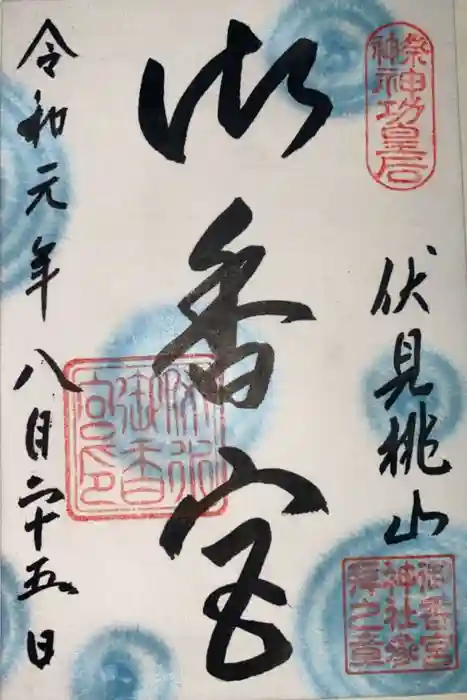 祭神
神功皇后
伏見桃山
御香宮
神社参
拝之章
御香宮
御香
宮印
令和元年八月二十五日